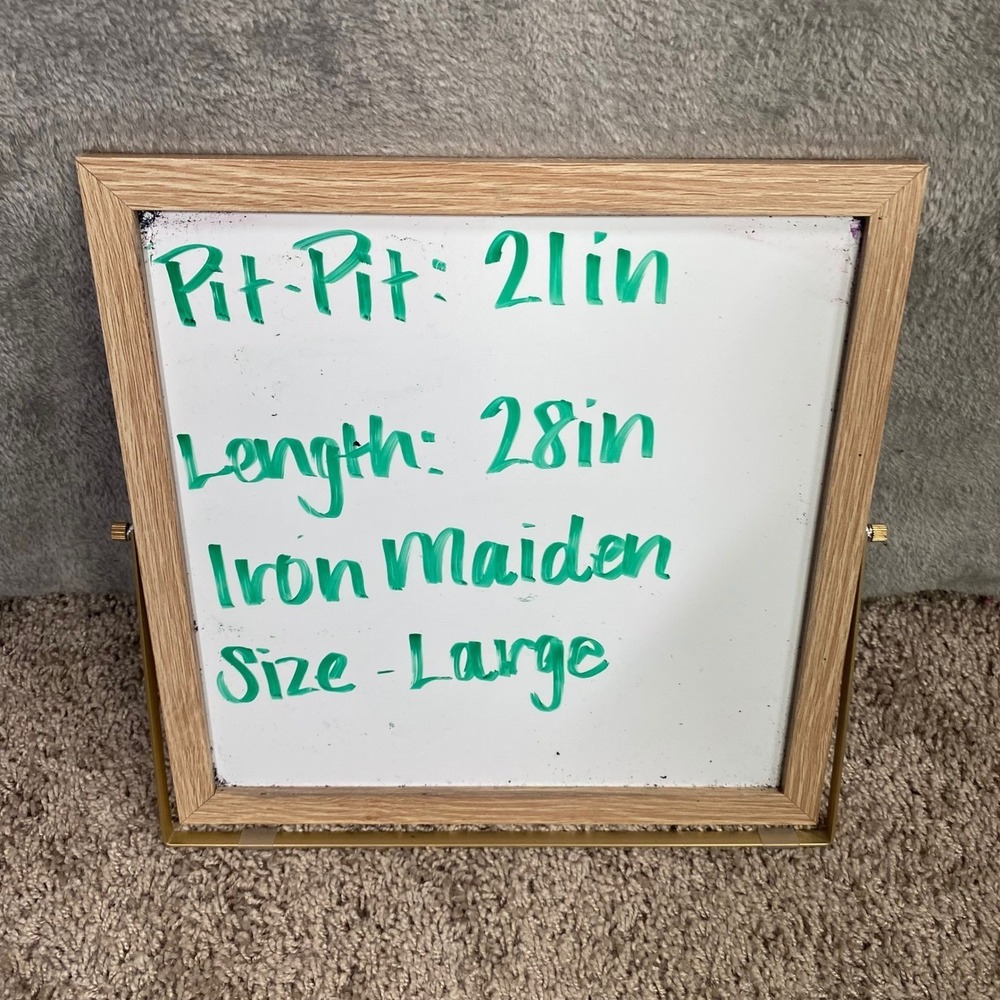 Pit-Pit: 21in
Length: 28in
Iron Maiden
Size - Large